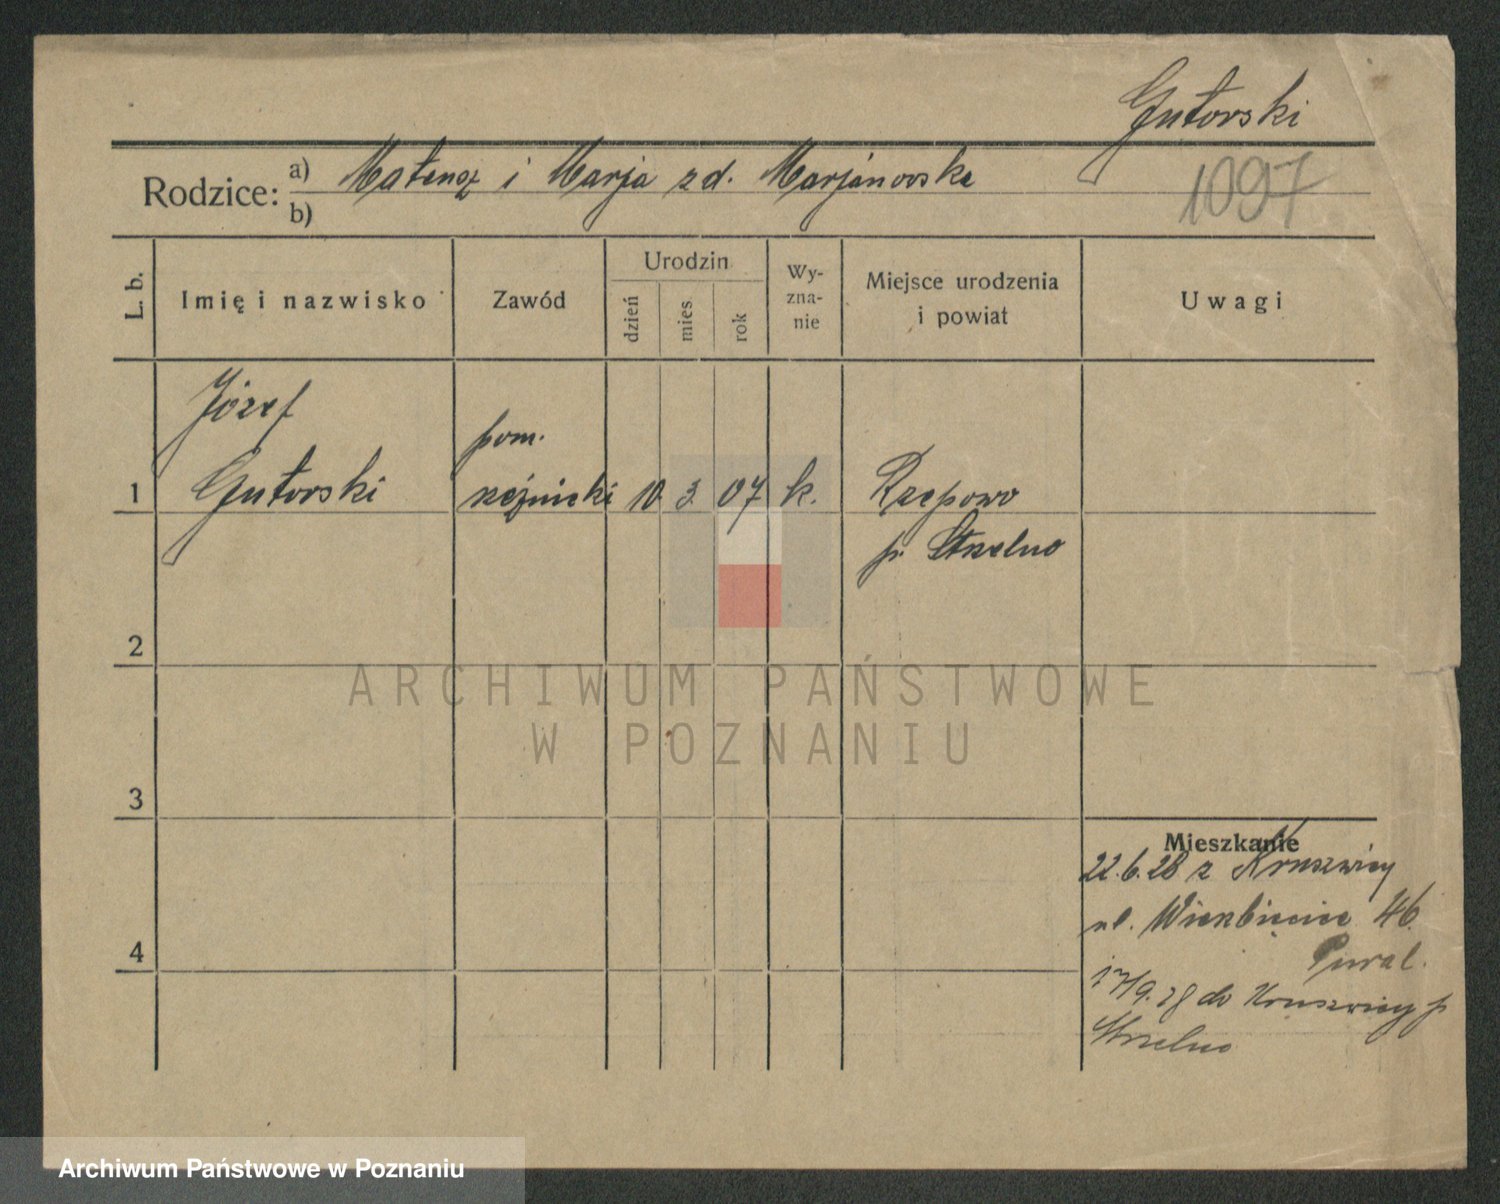 Gutorski
1097
Rodzice: a) Mateusz i Marja zd. Marjanowska
b)
L. b.
Imię i nazwisko
Zawód
Urodzin
dzień
mies
rok
Wy-
zna-
nie
Miejsce urodzenia
i powiat
Uwagi
Józef
pom.
1 Gutorski rzeźnicki 10. 3. 07 k. Rzepowo
p. Strzelno
2
ARCHIWUM PAŃSTWOWE
W POZNANIU
3
Mieszkanie
22.6.28 z Kruszwicy
ul. Wierzbięcice 46.
4
17/9.28 do Kruszwicy p
Strzelno
Archiwum Państwowe w Poznaniu